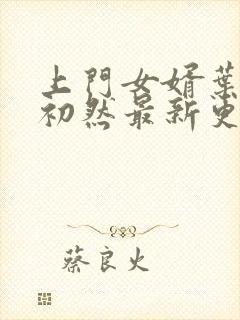 上門女婿葉
初然最新更
蔡良火